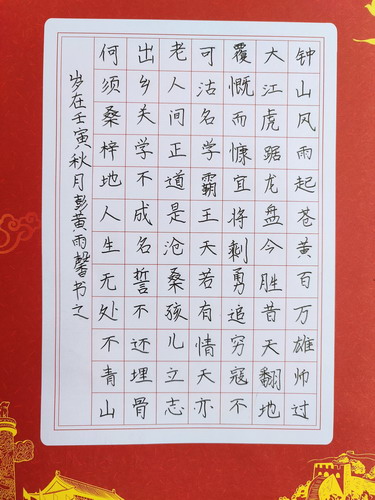 钟山风雨起苍黄百万雄帅过
大江虎踞龙盘今胜昔天翻地
覆慨而慷宜将剩勇追穷寇不
可沽名学霸王天若有情天亦
老人间正道是沧桑孩儿立志
出乡关学不成名誓不还埋骨
何须桑梓地人生无处不青山
岁在壬寅秋月彭黄雨馨书之